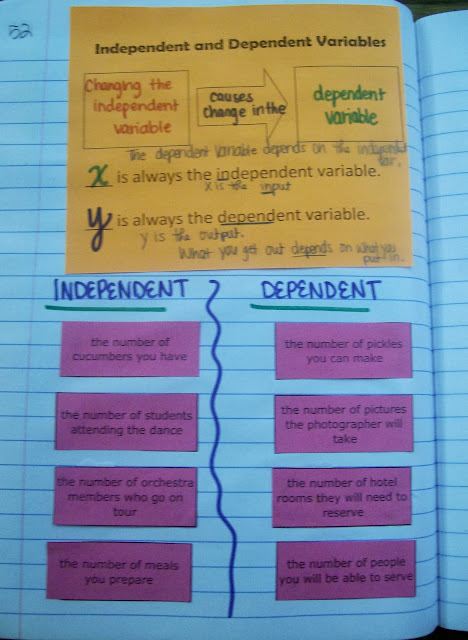 52
Independent and Dependent Variables
Changing the
independent
variable
causes
change in the
dependent
variable
The dependent variable depends on the independent
var.
x is always the independent variable.
x is the input
y is always the dependent variable.
y is the output.
What you get out depends on what you
put in.
INDEPENDENT
DEPENDENT
the number of
cucumbers you have
the number of pickles
you can make
the number of students
attending the dance
the number of pictures
the photographer will
take
the number of orchestra
members who go on
tour
the number of hotel
rooms they will need to
reserve
the number of meals
you prepare
the number of people
you will be able to serve